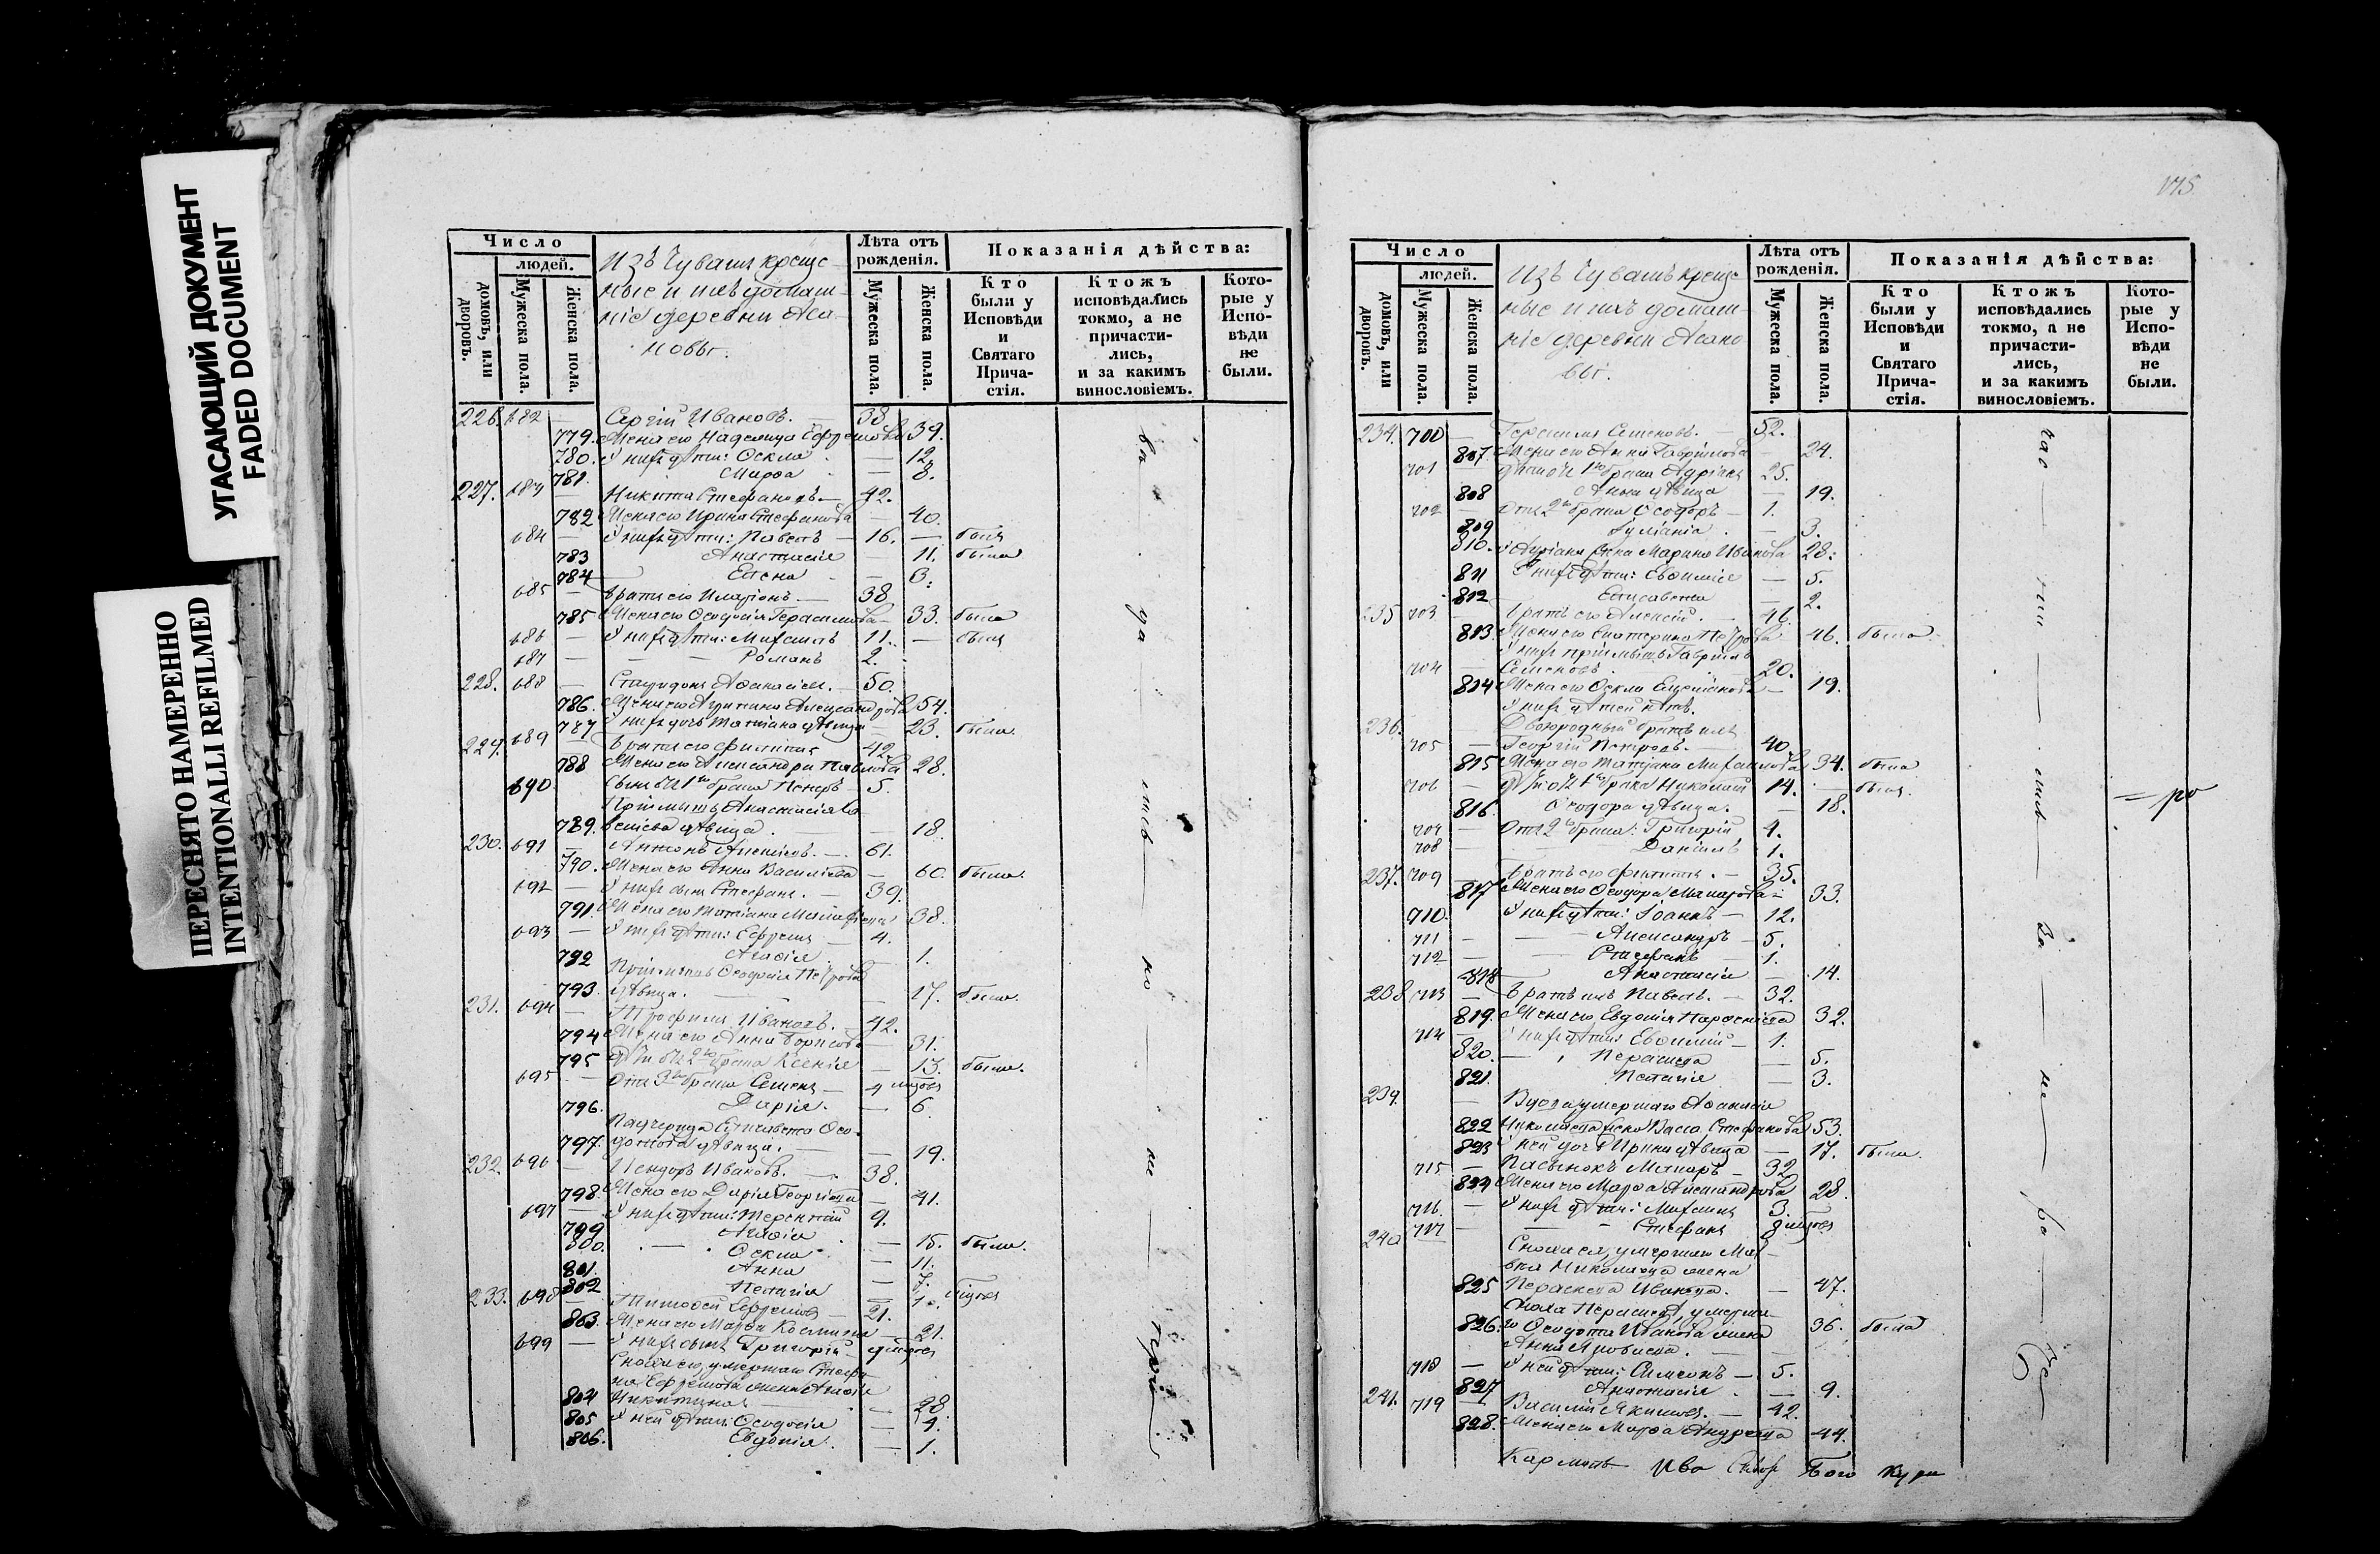 УГАСАЮЩИЙ ДОКУМЕНТ
FADED DOCUMENT
ПЕРЕСНЯТО НАМЕРЕННО
INTENTIONALLI REFILMED
Число
людей.
домовъ, или дворовъ.
Мужеска пола.
Женска пола.
Изъ Чувашъ креще-
ные и ихъ домаш-
ніе деревни Аса-
новы.
Лѣта отъ рожденія.
Мужеска пола.
Женска пола.
Показанія дѣйства:
Кто были у Исповѣди и Святаго Прича-стія.
Ктожъ исповѣдались токмо, а не причасти-лись, и за какимъ винословіемъ.
Кото-рые у Испо-вѣди не были.
226. 682 — Сергій Ивановъ. — 38
779. Жена его Надежда Ефремова 39.
780. У нихъ дѣти: Ѳекла — 12.
781. Марѳа — 8.
227. 683 — Никита Стефановъ. — 42.
782 Жена его Ирина Стефанова — 40.
684 — У нихъ дѣти: Павелъ — 16. — былъ
783 Анастасія — 11. была
784 Елена — 3.
685 — Братъ его Иларіонъ — 38
785 Жена его Ѳеодосія Герасимова 33. была
686 — У нихъ дѣти: Михаилъ 11. — былъ
687 — Романъ 2.
228. 688 — Спиридонъ Аѳанасіев. — 50.
786. Жена его Агрипина Александрова 54.
787 У нихъ дочь Татіана дѣвица — 23. была.
229. 689 — Братъ его Филиппъ 42
788 Жена его Александра Павлова 28.
690. Сынъ отъ 1го брака Петръ — 5.
Пріемышъ Анастасія
789. дѣвица. — 18.
230. 691 — Антонъ Алексѣевъ. — 61.
790. Жена его Анна Василіева — 60. была.
692 — У нихъ сынъ Стефанъ. — 39.
791. Жена его Татіана 38.
693 — У нихъ дѣти: Ефремъ — 4.
792 Агаѳія. 1.
Пріемышъ Ѳеодосія Петрова
793. дѣвица. — 17. была.
231. 694 — Трофимъ Ивановъ. — 42.
794 Жена его Анна Борисова — 31.
795 Дѣти отъ 2го брака Ксенія — 13. была.
695 — Отъ 3го брака Семенъ — 4
796. Дарія. — 6.
Падчерица Елисавета Ѳео-
797. дотова дѣвица. — 19.
232. 696 — Исидоръ Ивановъ. — 38.
798. Жена его Дарія Георгіева — 41.
697 — У нихъ дѣти: Терентій 9.
799 Агаѳія — 15. была.
800. Ѳекла — 11.
801. Анна — 7.
802 Пелагія — 1
233. 698 — Тимоѳей Ефремовъ — 21.
803. Жена его Марѳа Космина — 21.
699 — У нихъ сынъ Григорій
Сноха его, умершаго Стефа-
на Ефремова жена Агаѳія
804 Никитина — 28
805 У ней дѣти: Ѳеодосія — 4.
806. Евдокія. — 1.
175
Число
людей.
домовъ, или дворовъ.
Мужеска пола.
Женска пола.
Изъ Чувашъ креще-
ные и ихъ домаш-
ніе деревни Асано-
вы.
Лѣта отъ рожденія.
Мужеска пола.
Женска пола.
Показанія дѣйства:
Кто были у Исповѣди и Святаго Прича-стія.
Ктожъ исповѣдались токмо, а не причасти-лись, и за какимъ винословіемъ.
Кото-рые у Испо-вѣди не были.
234. 700 — Герасимъ Семеновъ. — 52.
807. Жена его Анна Гаврилова — 24.
701 Дѣти отъ 1го брака Адріанъ 25.
808 Анна дѣвица — 19.
702 — Отъ 2го брака Ѳеодоръ — 1.
809 Іуліанія. — 3.
810. Адріана жена Марина Иванова 28.
811 У нихъ дѣти: Евѳимія — 5.
812 Елисавета — 2.
235 703 — Братъ его Алексій. — 46.
813. Жена его Екатерина Петрова 46. была.
У нихъ пріемышъ Гавріилъ
704 — Семеновъ. — 20.
814 Жена его Ѳекла — 19.
У нихъ дѣтей нѣтъ.
236. Двоюродный братъ ихъ
705 — Георгій Петровъ. — 40
815 Жена его Татіана Михаилова 34. была
706 — Дѣти отъ 1го брака Николай 14. — былъ.
816. Ѳеодора дѣвица. — 18.
707 — Отъ 2го брака: Григорій 4.
708 Даніилъ 1.
237. 709 — Братъ его Филиппъ. — 35.
817 Жена его Ѳеодора Макарова — 33.
710. У нихъ дѣти: Іоаннъ — 12.
711 — Александръ — 5.
712 — Стефанъ — 1.
818 Анастасія — 14.
238 713 — Братъ ихъ Павелъ. — 32.
819. Жена его Евдокія 32.
714 — У нихъ дѣти: Евѳимій — 1.
820. Параскева — 5.
821. Пелагія — 3.
239. — Вдова умершаго Аѳанасія
822 Николаева жена Васса Стефанова 53.
823 У ней дочь Ирина дѣвица — 17. была.
715 — Пасынокъ Макаръ — 32
824 Жена его Марѳа Александрова 28.
716. — У нихъ дѣти: Михаилъ 3.
717 — Стефанъ 8
240 Сноха ея, умершаго Мат-
вѣя Николаева жена
825 Параскева Иванова. — 47.
Сноха Параскевы, умерша-
826. го Ѳеодота Иванова жена 36. была
Анна Яковлева.
718 — У ней дѣти: Симеонъ — 5.
827 Анастасія — 9.
241. 719 — Василій Якимовъ. — 42.
828. Жена его Марѳа Андреева 44.